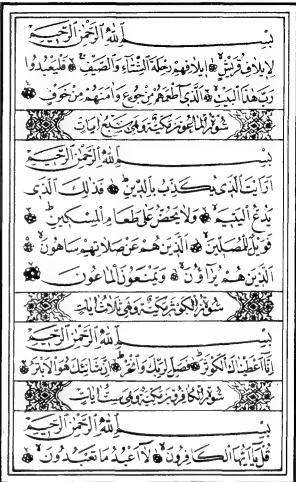 بِسْمِ اللهِ الرَّحْمٰنِ الرَّحِيمِ
لِإِيلَافِ قُرَيْشٍ ۝ إِيلَافِهِمْ رِحْلَةَ الشِّتَاءِ وَالصَّيْفِ ۝ فَلْيَعْبُدُوا
رَبَّ هٰذَا الْبَيْتِ ۝ الَّذِي أَطْعَمَهُمْ مِنْ جُوعٍ وَآمَنَهُمْ مِنْ خَوْفٍ ۝
سُورَةُ الْمَاعُونِ مَكِّيَّةٌ وَهِيَ سَبْعُ آيَاتٍ
بِسْمِ اللهِ الرَّحْمٰنِ الرَّحِيمِ
أَرَأَيْتَ الَّذِي يُكَذِّبُ بِالدِّينِ ۝ فَذٰلِكَ الَّذِي
يَدُعُّ الْيَتِيمَ ۝ وَلَا يَحُضُّ عَلَى طَعَامِ الْمِسْكِينِ ۝
فَوَيْلٌ لِلْمُصَلِّينَ ۝ الَّذِينَ هُمْ عَنْ صَلَاتِهِمْ سَاهُونَ ۝
الَّذِينَ هُمْ يُرَاؤُونَ ۝ وَيَمْنَعُونَ الْمَاعُونَ
سُورَةُ الْكَوْثَرِ مَكِّيَّةٌ وَهِيَ ثَلَاثُ آيَاتٍ
بِسْمِ اللهِ الرَّحْمٰنِ الرَّحِيمِ
إِنَّا أَعْطَيْنَاكَ الْكَوْثَرَ ۝ فَصَلِّ لِرَبِّكَ وَانْحَرْ ۝ إِنَّ شَانِئَكَ هُوَ الْأَبْتَرُ ۝
سُورَةُ الْكَافِرُونَ مَكِّيَّةٌ وَهِيَ سِتُّ آيَاتٍ
بِسْمِ اللهِ الرَّحْمٰنِ الرَّحِيمِ
قُلْ يَا أَيُّهَا الْكَافِرُونَ ۝ لَا أَعْبُدُ مَا تَعْبُدُونَ ۝